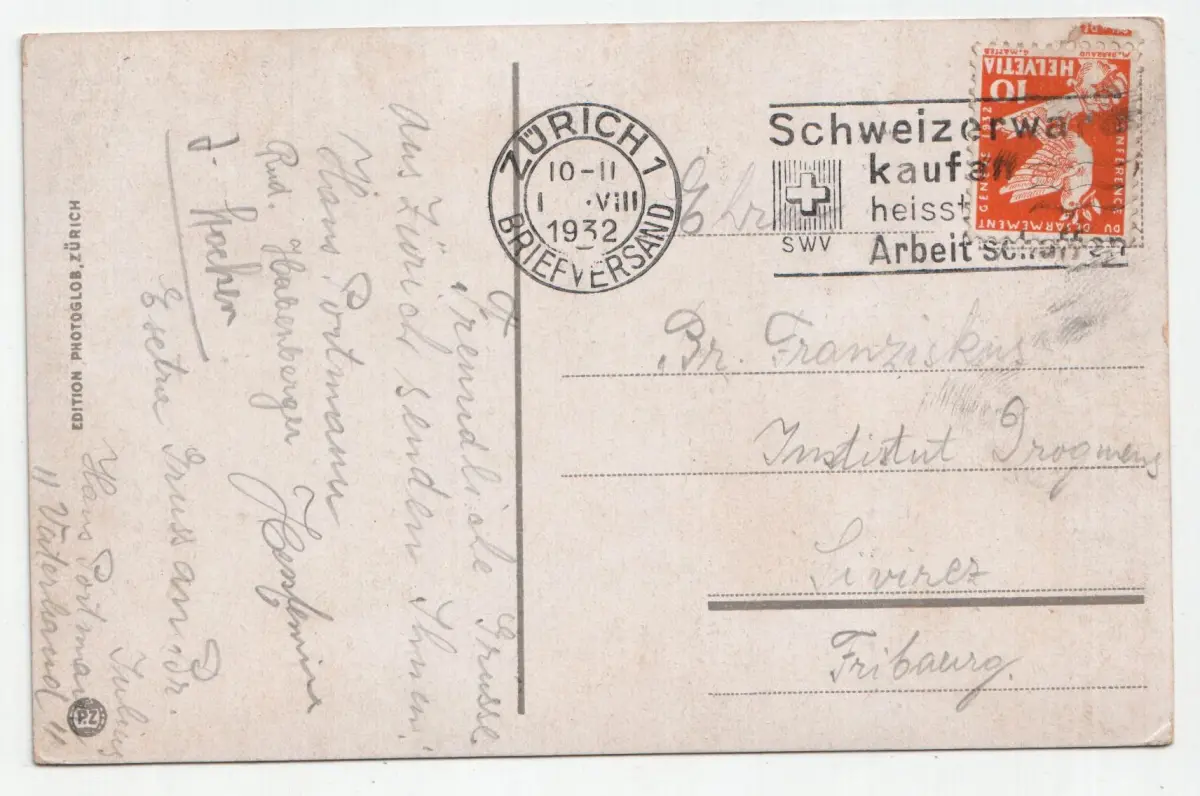 Freundliche Grüsse
aus Zürich senden Ihnen!
Hans Portmann
Rud. Habenberger
J. Kocher
Extra Gruss an Br.
Hans Portmann
"Vaterland"
EDITION PHOTOGLOB, ZÜRICH
PZ
ZÜRICH 1
10-11
1 .VIII
1932
BRIEFVERSAND
Schweizerwa
kaufen
heisst
Arbeit schaffen
SWV
HELVETIA
10
CONFERENCE DU DESARMEMENT GENEVE 1932
Ehrw
Br. Franziskus
Institut Drogmens
Sivirez
Fribourg.